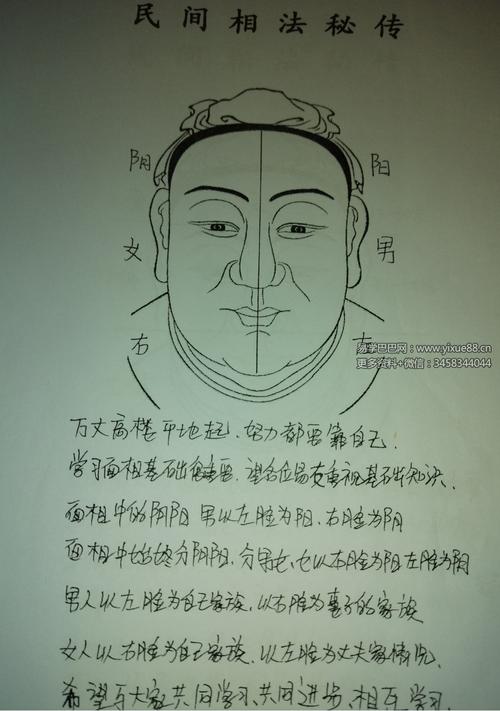 民间相法秘传
阴 阳
女 男
右 左
易学巴巴网:www.yixue88.cn
更多资料+微信:3458344044
万丈高楼平地起、努力都要靠自己.
学习面相基础很重要、望各位易友重视基础知识、
面相中的阴阳 男以左脸为阳、右脸为阴
面相中始终分阴阳、分男女、女以右脸为阳左脸为阴
男人以左脸为自己家族、以右脸为妻子的家族
女人以右脸为自己家族、以左脸为丈夫家情况、
希望与大家共同学习、共同进步、相互学习.